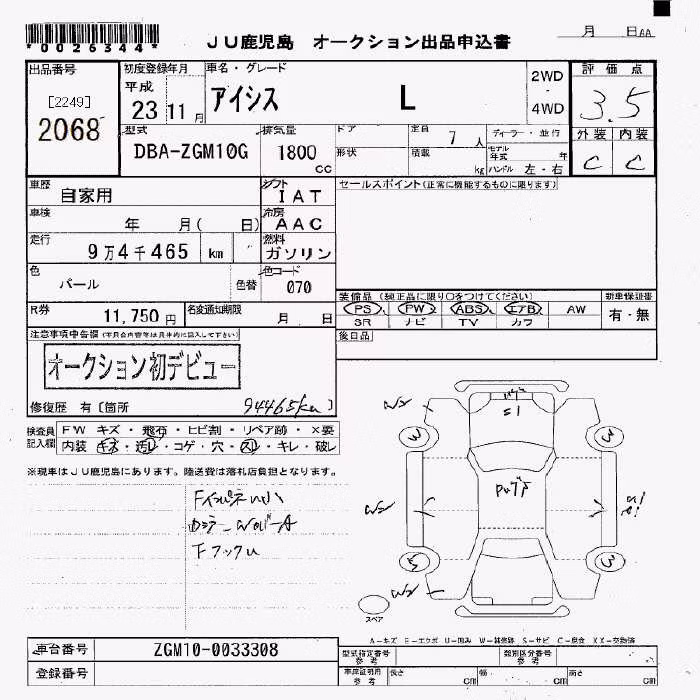 *0026344*
JU鹿児島 オークション出品申込書
月 日 AA
出品番号 初度登録年月 車名・グレード 2WD ・ 4WD 評価点
[2249]
2068
平成 23 11月 アイシス L 3.5
型式 排気量 ドア 定員 7人 ディーラー・並行 外装 内装
DBA-ZGM10G 1800cc 形状 積載 kg モデル年式 年 ハンドル 左・右 C C
車歴 自家用 シフト IAT セールスポイント(正常に機能するものに限ります)
車検 年 月( 日) 冷房 AAC
走行 9万4千465 km 燃料 ガソリン
色 パール 色替 色コード 070
装備品(純正品に限り○をつけてください) 新車保証書
R券 11,750円 名変通知期限 月 日
PS PW ABS エアB AW 有・無
SR ナビ TV カワ
注意事項申告欄 後日品
オークション初デビュー
修復歴 有〔箇所 94465km〕
検査員記入欄 FW キズ・飛石・ヒビ割・リペア跡・×要
内装 キズ・汚レ・コゲ・穴・スレ・キレ・破レ
※現車はJU鹿児島にあります。陸送費は落札店負担となります。
下フックU
W2
W2
W2
3
3
5
3
スペア
A-キズ E-エクボ U-凹み W-補修跡 S-サビ C-腐食 XX-交換済
車台番号 ZGM10-0033308 型式指定番号 参考 類別区分番号 参考
登録番号 車庫証明用 参考 長さ cm 幅 cm 高さ cm